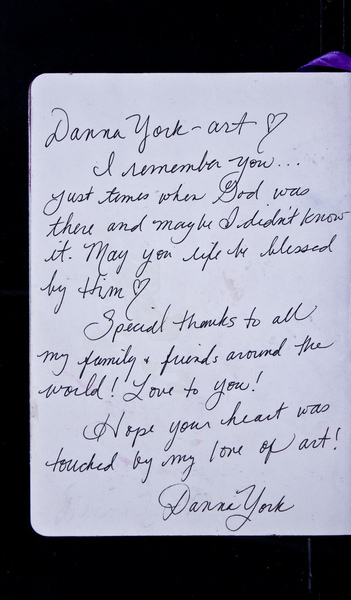 Danna York - art ♡
I remember you...
just times when God was
there and maybe I didn't know
it. May you life be blessed
by Him ♡
Special thanks to all
my family & friends around the
world! Love to you!
Hope your heart was
touched by my love of art!
Danna York